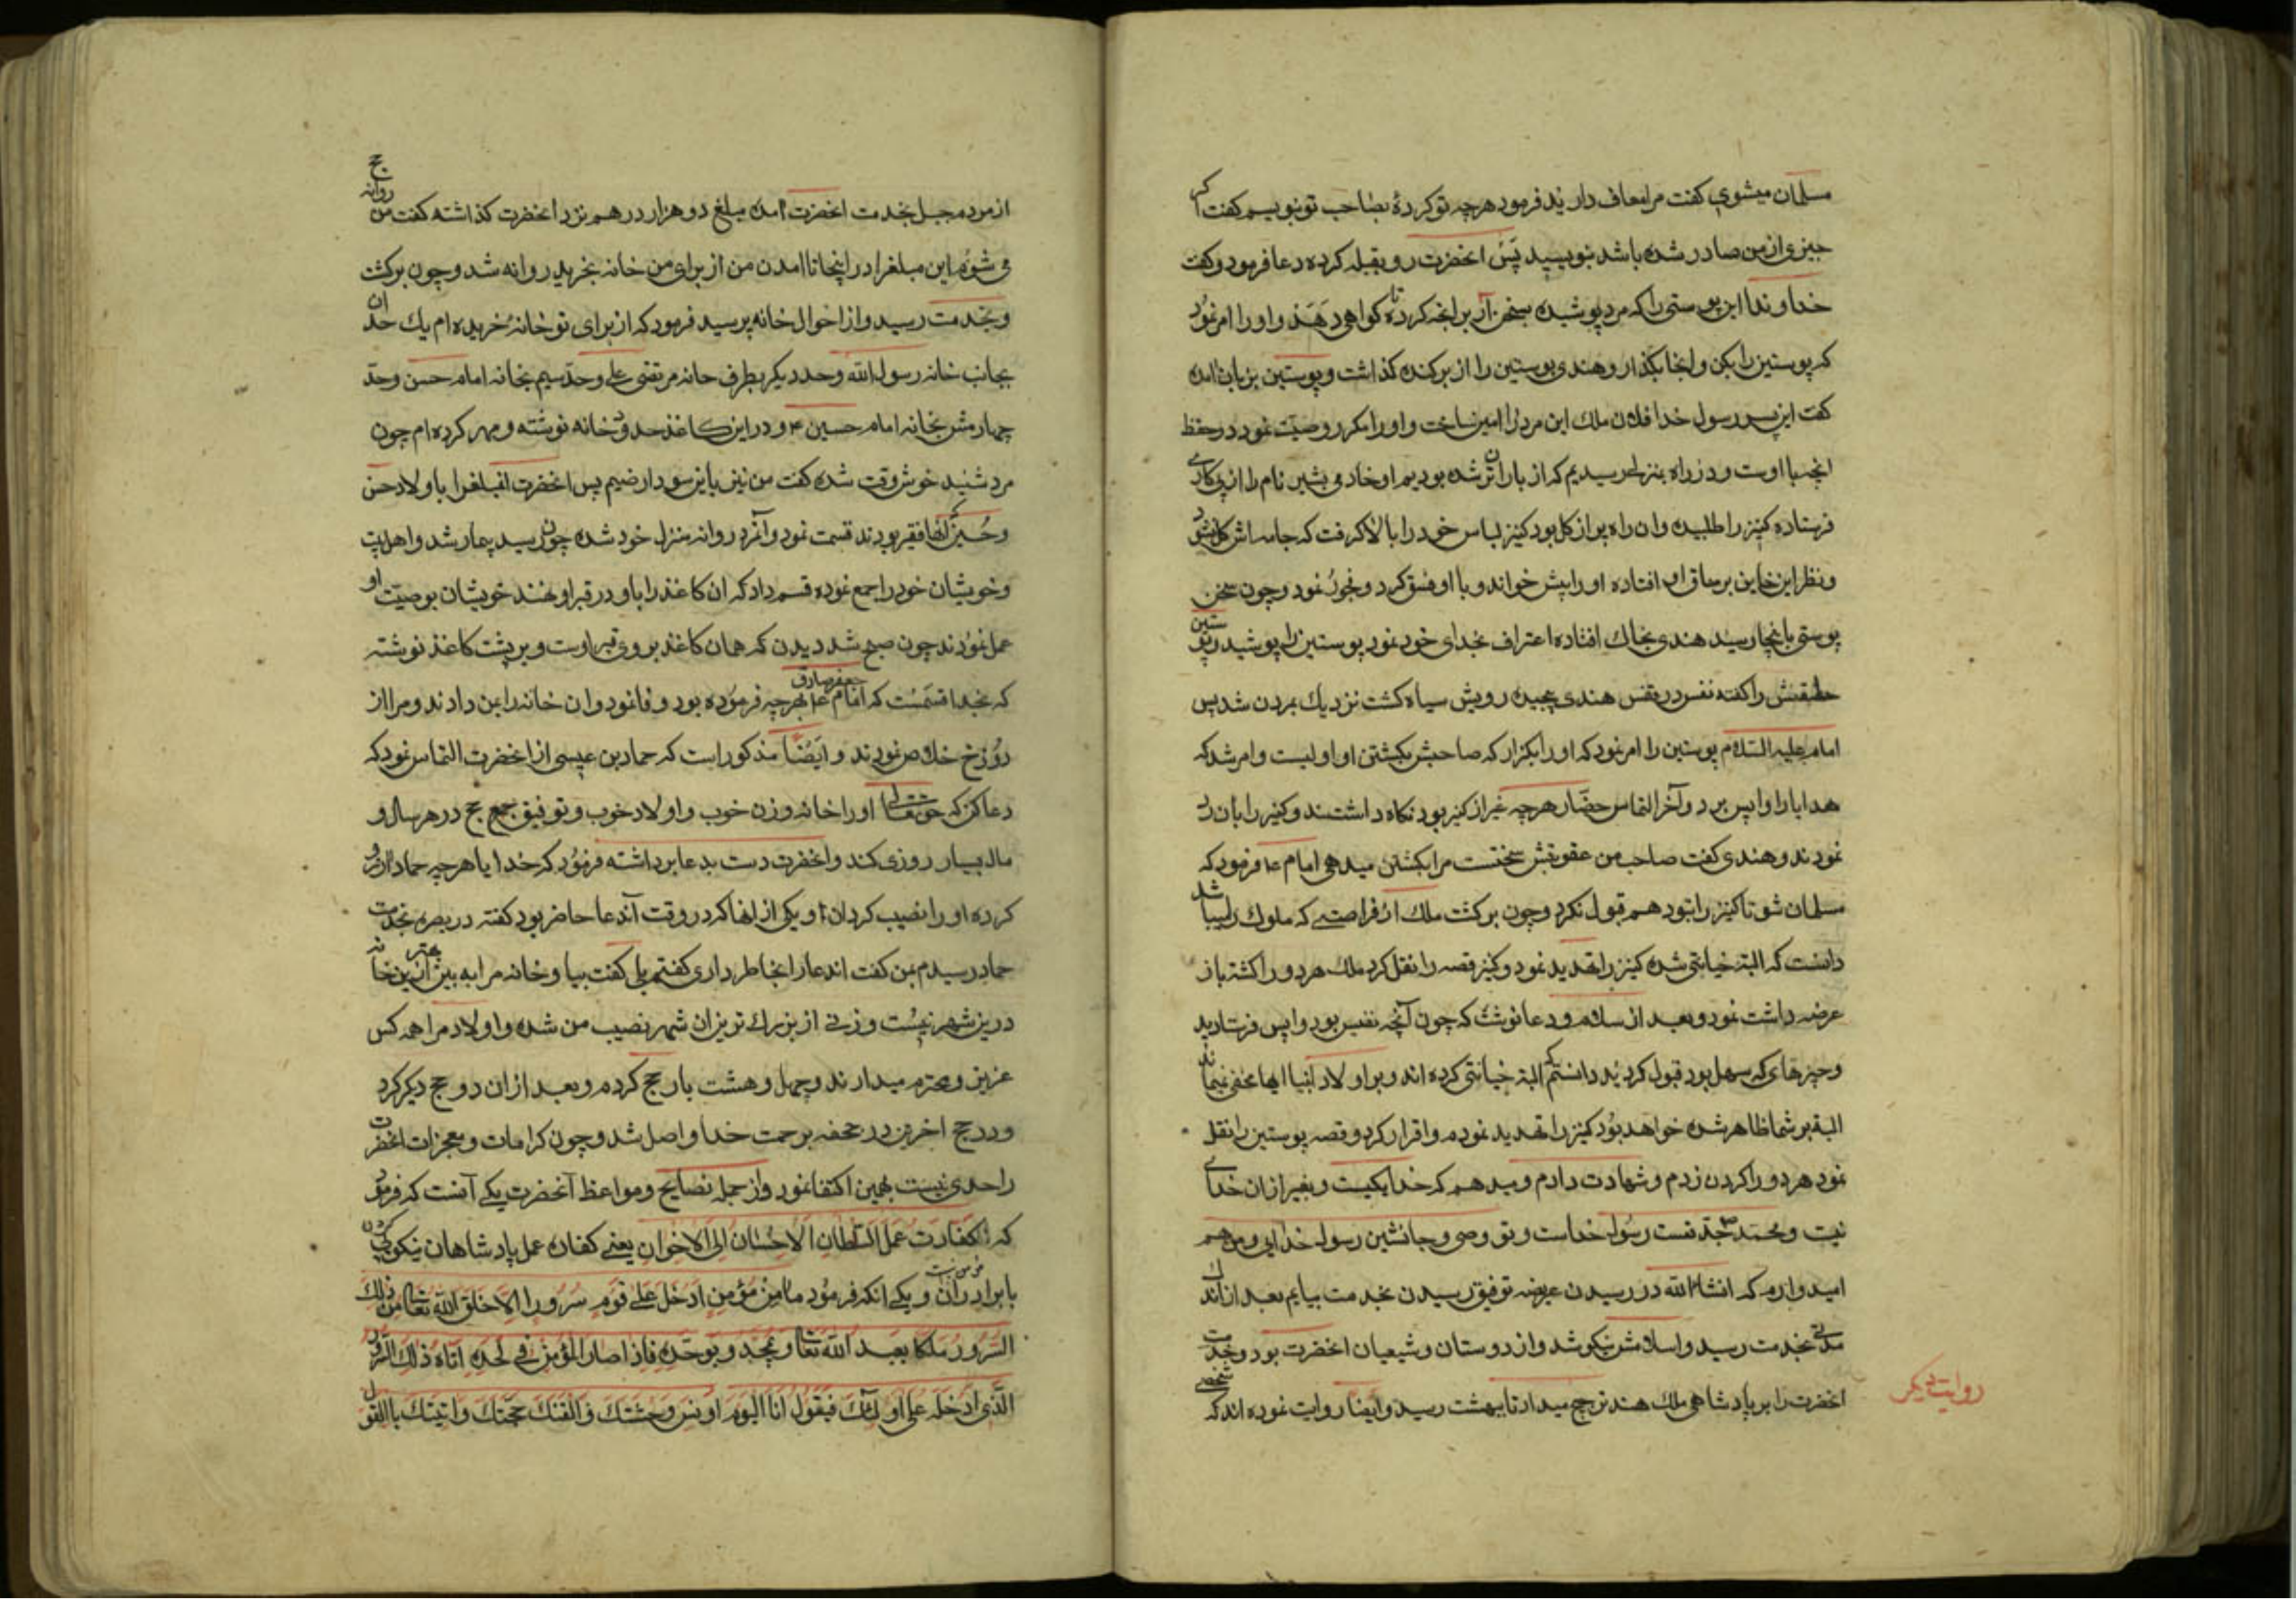 مسلمان میشوی کفت مرا معاف دارید فرمود هرچه تو کردهٔ بصاحب تو نویسم کفت اکر
چیزی از من صادر شده باشد بنویسید پس انحضرت رو بقبله کرده دعا فرمود و کفت
خداوندا این پوستی را که مرد پوشیده بسخن آر بر انچه کرده تا کواهی دهد و اورا امر نمود
که پوستین را بکن و انجا بکذار و هندی پوستین را از بر کنده کذاشت و پوستین بزبان امده
کفت ای پسر رسول خدا فلان ملک این مرد را امین ساخت و اورا مکرر وصیت نمود در حفظ
انچه با اوست و در راه بمنزلی رسیدیم که از باران تر شده بودیم او خادمی بشیر نام را از پی کاری
فرستاده کنیز را طلبیده و ان راه پر از کل بود کنیز لباس خود را بالا کرفت که جامه اش کل نشود
و نظر این خاین بر ساق او افتاده او را پیش خواند و با او فسق کرد و فجور نمود و چون سخن
پوستی بانجا رسید هندی بخاک افتاده اعتراف بخدای خود نمود پوستین را پوشید و پوستین
حلقش را کفته نفس در نفس هندی پیچیده رویش سیاه کشت نزدیک بمردن شد پس
امام علیه السلام پوستین را امر نمود که او را بکزار که صاحبش بکشتن او اولیست و امر شد که
هدایا را واپس برد و آخر التماس حضار هرچه غیر از کنیز بود نکاه داشتند و کنیز را بان رد
نمودند و هندی کفت صاحب من عقوبتش سختست مرا بکشتن میدهی امام ع فرمود که
مسلمان شو تا کنیز را بتو دهم قبول نکرد و چون برکشت ملک از فراستی که ملوک را میباشد
دانست که البته خیانتی شده کنیز را تهدید نمود و کنیز قصه را نقل کرد ملک هر دو را کشته باز
عرضه داشت نمود و بعد از سلام و دعا نوشت که چون آنچه نفیس بود واپس فرستادید
و چیزهای که سهل بود قبول کردید دانستم که البته خیانتی کرده اند و بر اولاد انبیا اینها مخفی نمیماند
البته بر شما ظاهر شده خواهد بود کنیز را تهدید نمودم و اقرار کرد و قصه پوستین را نقل
نمود هر دو را کردن زدم و شهادت دادم و میدهم که خدا یکیست و بغیر از ان خدای
نیست و محمد ص جد تست رسول خداست و تو وصی و جانشین رسول خدایی و من هم
امیدوارم که انشاء الله در رسیدن عریضه توفیق رسیدن بخدمت بیابم بعد از اندک
مدتی بخدمت رسید و اسلامش نیکو شد و از دوستان و شیعیان انحضرت بود و خدمت
انحضرت را بر پادشاهی ملک هند ترجیح میداد تا ببهشت رسید و ایضا روایت نموده اند که شخصی
روایت دیکر
از مردم جبل بخدمت انحضرت امده مبلغ دو هزار درهم نزد انحضرت کذاشته کفت من روانه حج
می شوم این مبلغرا در اینجا تا امدن من از برای من خانه بخرید روانه شد و چون برکشت
و بخدمت رسید و از احوال خانه پرسید فرمود که از برای تو خانهٔ خریده ام یک حد ان
بجانب خانه رسول الله و حد دیکر بطرف خانه مرتضی علی و حد سیم بخانه امام حسن و حد
چهارمش بخانه امام حسین ع و در این کاغذ حدود خانه نوشته و مهر کرده ام چون
مرد شنید خوش وقت شده کفت من نیز باین سودا راضیم پس انحضرت انمبلغرا باولاد حسن
و حسین که انها فقیر بودند قسمت نمود و آنمرد روانه منزل خود شده چون رسید بیمار شد و اهلبیت
و خویشان خود را جمع نموده قسم داد که ان کاغذ را با او در قبر او نهند خویشان بوصیت او
عمل نمودند چون صبح شد دیدن که همان کاغذ بر وی قبر اوست و بر پشت کاغذ نوشته
که بخدا قسمست که امام جعفر صادق ع بهرچه فرموده بود وفا نمود و ان خانه را بمن دادند و مرا از
دوزخ خلاص نمودند و ایضا مذکور است که حماد بن عیسی از انحضرت التماس نمود که
دعا کن که حقتعالی او را خانه و زن خوب و اولاد خوب و توفیق جمع حج در هر سال و
مال بسیار روزی کند و انحضرت دست بدعا برداشته فرمود که خدایا هرچه حماد ارزو
کرده او را نصیب کردان و یکی از انها کرد روقت آندعا حاضر بود کفته در بصره بخدمت
حماد رسیدم بمن کفت اندعا را بخاطر داری کفتم بلی کفت بیا و خانه مرا به بین بهتر از این خانه
در بن شهر نیست و زنی از بزرک تریزان شهر نصیب من شده و اولاد مرا همه کس
عزیز و محترم میدارند و چهل و هشت بار حج کردم و بعد از ان دو حج دیکر کرد
و در حج اخرین در محفه برحمت خدا واصل شد و چون کرامات و معجزات انحضرت
را حدی نیست بهمین اکتفا نمود و از جمله نصایح و مواعظ آنحضرت یکی آنست که فرمود
که کفارت عمل السلطان الاحسان الی الاخوان یعنی کفاره عمل پادشاهان نیکویی کردن
با برادران مومن است و یکی انکه فرمود ما من مؤمن ادخل علی قوم سرورا الا خلق الله تعالی من ذلک
السرور ملکا یعبد الله تعالی و یمجد و یوحده فاذا صار المؤمن فی لحده اتاه ذلک السرور
الذی ادخله علی اولئک فیقول انا الیوم اونس وحشتک و القنک حجتک و اثبتک بالقول